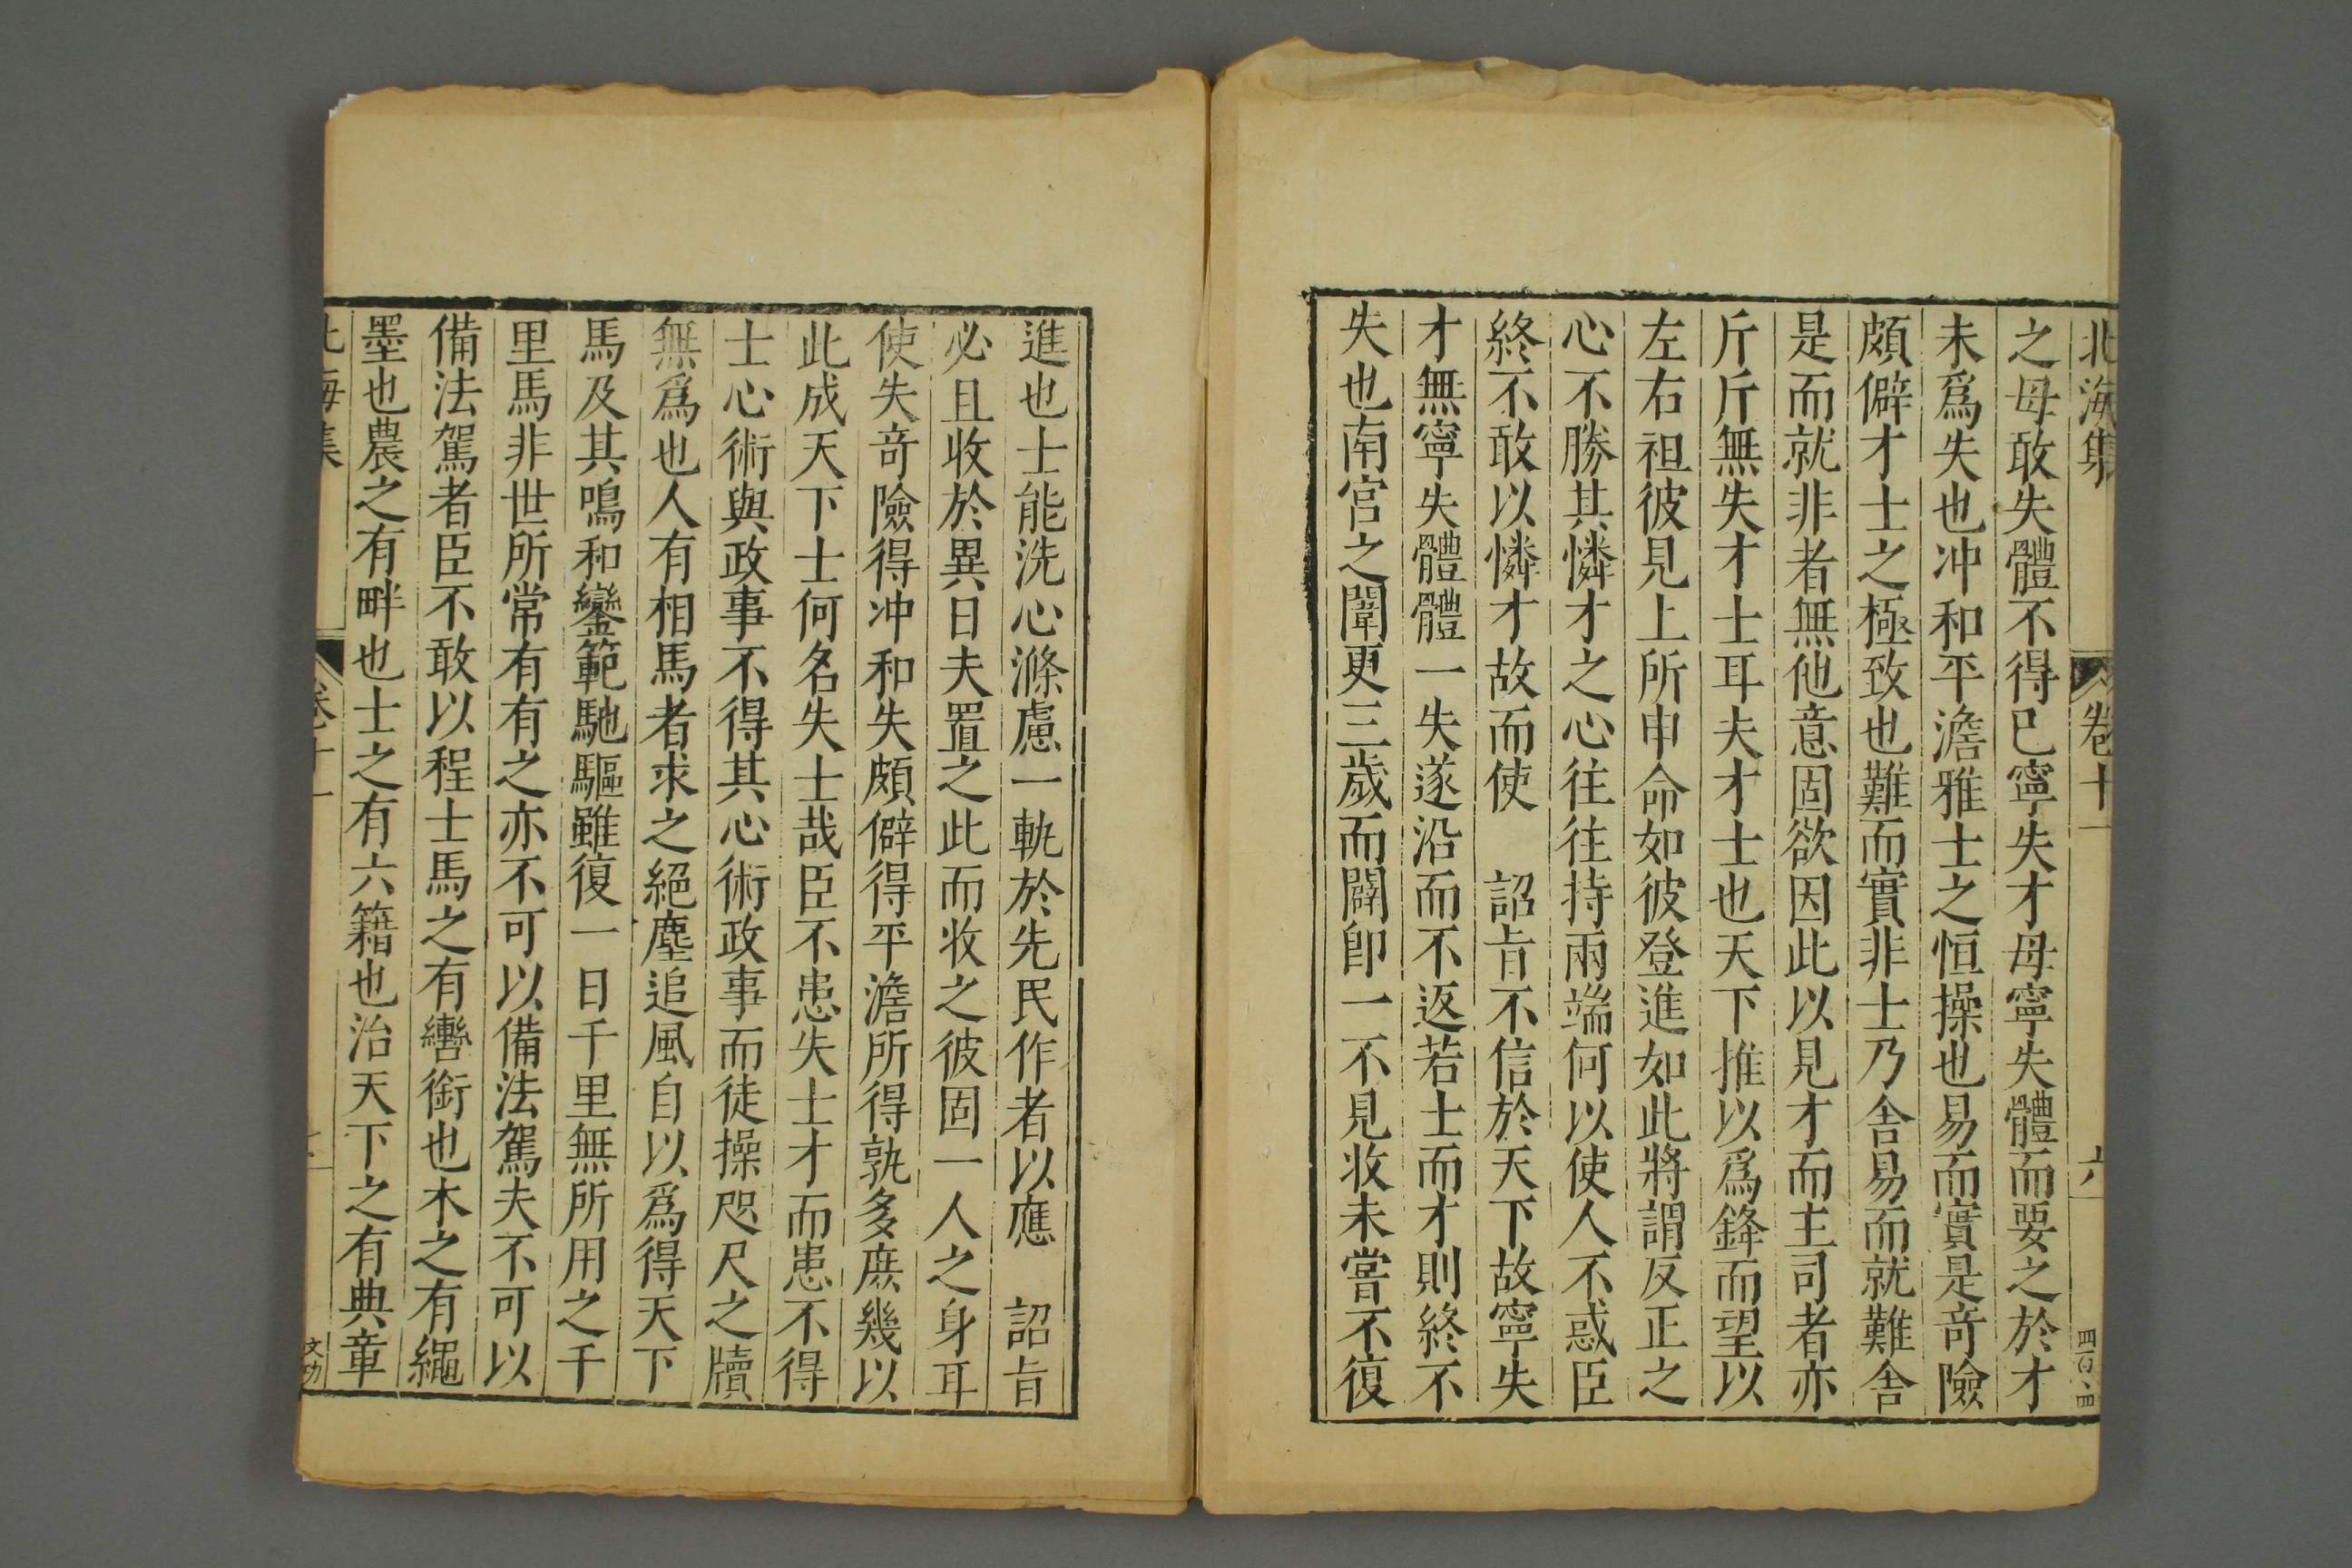 北海集 卷十一 六 四百四
之毋敢失體不得已寧失才毋寧失體而要之於才
未爲失也冲和平澹雅士之恒操也易而實是奇險
頗僻才士之極致也難而實非士乃舍易而就難舍
是而就非者無他意固欲因此以見才而主司者亦
斤斤無失才士耳夫才士也天下推以爲鋒而望以
左右袒彼見上所申命如彼登進如此將謂反正之
心不勝其憐才之心往往持兩端何以使人不惑臣
終不敢以憐才故而使 詔旨不信於天下故寧失
才無寧失體體一失遂沿而不返若士而才則終不
失也南宮之闈更三歲而闢卽一不見收未嘗不復
進也士能洗心滌慮一軌於先民作者以應 詔旨
必且收於異日夫置之此而收之彼固一人之身耳
使失奇險得冲和失頗僻得平澹所得孰多庶幾以
此成天下士何名失士哉臣不患失士才而患不得
士心術與政事不得其心術政事而徒操咫尺之牘
無爲也人有相馬者求之絕塵追風自以爲得天下
馬及其鳴和鑾範馳驅雖復一日千里無所用之千
里馬非世所常有有之亦不可以備法駕夫不可以
備法駕者臣不敢以程士馬之有轡銜也木之有繩
墨也農之有畔也士之有六籍也治天下之有典章
北海集 卷十一 文功